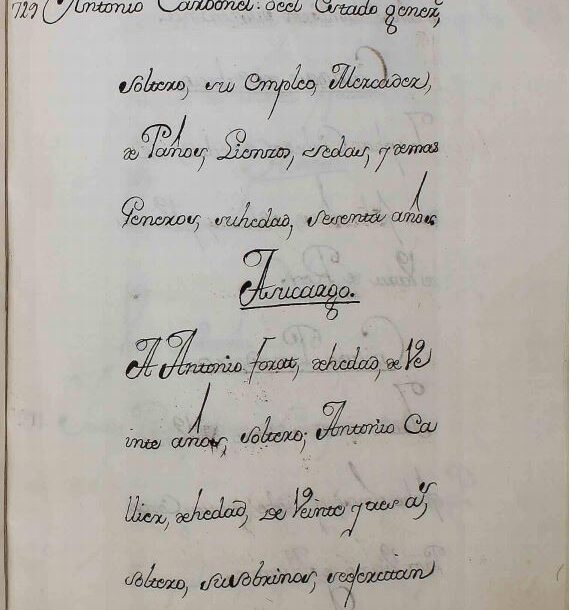 729 Antonio Carbonel: del Estado gener,
soltero, su Empleo, Mercader,
de Paños, Lienzos, sedas, y demas
Generos, su hedad, sesenta años
A su cargo.
A Antonio Forat, de hedad, de Ve
inte años, soltero; Antonio Ca
llier, de hedad, de Veinte y tres as,
soltero, sus sobrinos, se exercitan